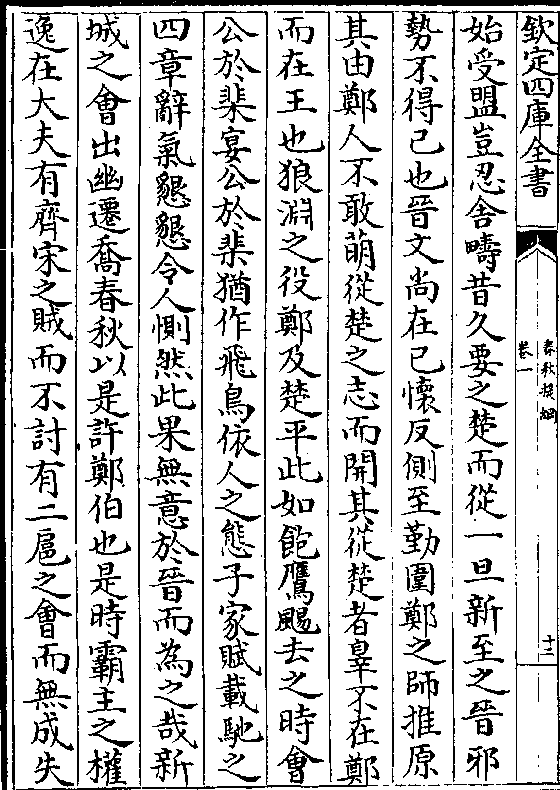 欽定四庫全書
春秋提綱
卷一
十三
始受盟豈忍舍疇昔久要之楚而從一旦新至之晉邪
勢不得已也晉文尚在已懷反側至勤圍鄭之師推原
其由鄭人不敢萌從楚之志而開其從楚者辠不在鄭
而在王也狼淵之役鄭及楚平此如飽鷹颺去之時會
公於棐宴公於棐猶作飛鳥依人之態子家賦載馳之
四章辭氣懇懇令人惻然此果無意於晉而為之哉新
城之會出幽遷喬春秋以是許鄭伯也是時霸主之權
逸在大夫有齊宋之賊而不討有二扈之會而無成失